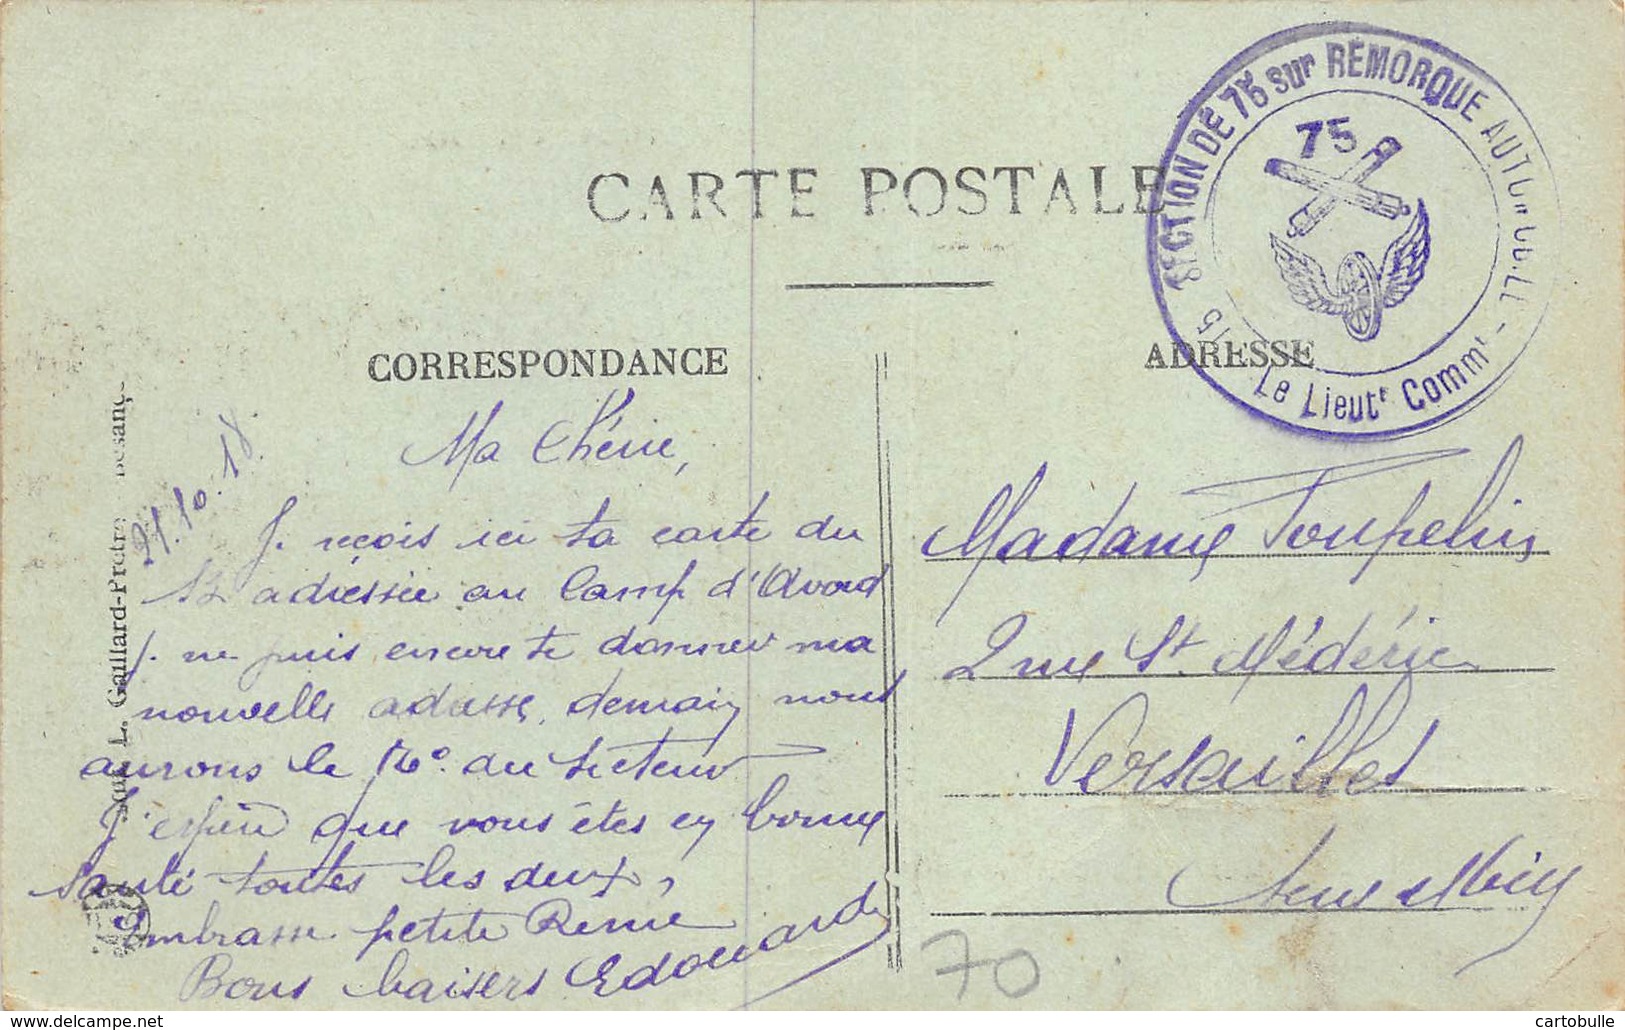 CARTE POSTALE
CORRESPONDANCE
ADRESSE
15 SECTION DE 75 sur REMORQUE AUTOMOBILE -
75
Le Lieut<sup>t</sup> Comm<sup>t</sup>
L. Gaillard-Prêtre, Besanç
21.10.18
Ma Chérie,
Je reçois ici ta carte du
12 adressée au Camp d'Avord
Je ne puis encore te donner ma
nouvelle adresse, demain nous
aurons le No. du secteur
J'espère que vous êtes en bonne
santé toutes les deux,
Embrasse petite Renée
Bons baisers Edouard
Madame Toupelin
2 rue St Médéric
Versailles
Seine et Oise
70
www.delcampe.net
cartobulle